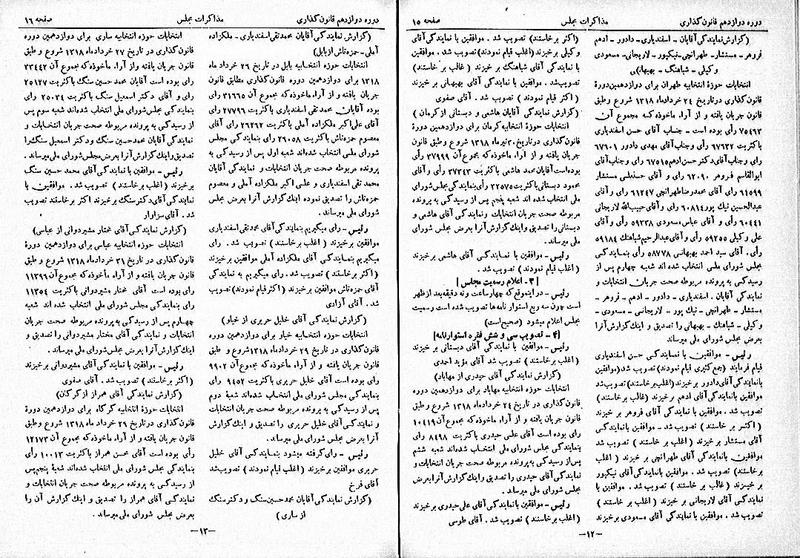 دوره دوازدهم قانون‌گذاری
مذاکرات مجلس
صفحه ۱۵
(گزارش نمایندگی آقایان - اسفندیاری - دادور - ادهم
فروهر - مستشار - طهرانچی - نیکپور - لاریجانی - مسعودی
و کیلی - شباهنگ - بهبهانی)
انتخابات حوزهٔ انتخابیه طهران برای دوازدهمین دورهٔ
قانون گذاری در تاریخ ۲۴ خردادماه ۱۳۱۸ شروع و طبق
قانون جریان یافته و از آراء ماخوذه که مجموع آن
رأی بوده است - جناب آقای حسن اسفندیاری
رأی و جناب آقای مهدی دادور ۶۷۶۰۱
رأی و جناب آقای دکتر حسن ادهم ۶۷۵۱۵ رأی و جناب آقای
ابوالقاسم فروهر ۶۲۰۹۰ رأی و آقای حسنعلی مستشار
۶۱۰۹۹ رأی و آقای محمدرضا طهرانچی ۶۱۲۴۷ رأی و آقای
عبدالحسین نیک پور ۶۰۸۱۴ رأی و آقای حبیب‌الله لاریجانی
۶۰۴۴۱ رأی و آقای عباس مسعودی ۵۹۲۳۸ رأی و آقای
علی وکیلی ۵۹۲۵۵ رأی و آقای عبدالرحیم شباهنگ ۵۹۱۸۴
رأی . آقای سید احمد بهبهانی ۵۸۷۷۸ رأی بنمایندگی
مجلس شورای ملی انتخاب شده‌اند شعبه چهارم پس از
رسیدگی به پرونده مربوطه صحت جریان انتخابات و
نمایندگی آقایان . اسفندیاری - دادور - ادهم - فروهر -
مستشار - طهرانچی - نیک پور - لاریجانی - مسعودی -
وکیلی - شباهنگ - بهبهانی را تصدیق و اینک گزارش آنرا
بعرض مجلس شورای ملی میرساند
رئیس - موافقین با نمایندگی آقای حسن اسفندیاری
قیام فرمایند (جمع کثیری قیام نمودند) تصویب شد. موافقین
با نمایندگی آقای دادور برخیزند (اغلب برخاستند) تصویب شد
موافقین با نمایندگی آقای ادهم برخیزند (اغلب برخاستند)
تصویب شد . موافقین با نمایندگی آقای فروهر برخیزند
(اغلب برخاستند) تصویب شد . موافقین با نمایندگی
آقای مستشار برخیزند (اغلب برخاستند) تصویب شد .
موافقین با نمایندگی آقای طهرانچی برخیزند (اغلب
برخاستند) تصویب شد . موافقین با نمایندگی آقای نیکپور
برخیزند (غالب برخاستند) تصویب شد . موافقین با
نمایندگی آقای لاریجانی برخیزند (اغلب برخاستند)
تصویب شد . موافقین با نمایندگی آقای مسعودی برخیزند
(اکثر برخاستند) تصویب شد . موافقین با نمایندگی آقای
وکیلی برخیزند (اغلب قیام نمودند) تصویب شد. موافقین
با نمایندگی آقای شباهنگ برخیزند (غالب برخاستند)
تصویب شد. موافقین با نمایندگی آقای بهبهانی برخیزند
(اکثر قیام نمودند) تصویب شد . آقای صفوی
(گزارش نمایندگی آقایان هاشمی و دبستانی از کرمان)
انتخابات حوزهٔ انتخابیه کرمان برای دوازدهمین دورهٔ
قانون‌گذاری در تاریخ ۳۰ تیرماه ۱۳۱۸ شروع و طبق قانون
جریان یافته و از آراء ماخوذه که مجموع آن ۳۷۹۹۹ رأی
بوده است آقایان محمد هاشمی باکثریت ۳۷۲۴۳ رأی و آقای
محمود دبستانی باکثریت ۲۲۵۷۵ رأی بنمایندگی مجلس شورای
ملی انتخاب شده‌اند شعبه پنجم پس از رسیدگی به پرونده
مربوطه صحت جریان انتخابات و نمایندگی آقای هاشمی و
دبستانی را تصدیق و اینک گزارش آنرا بعرض مجلس شورای
ملی میرساند.
رئیس - موافقین با نمایندگی آقای هاشمی برخیزند
(اغلب قیام نمودند) تصویب شد .
[۳ - اعلام رسمیت مجلس]
رئیس - در اینموقع که چهار ساعت و نه دقیقه بعد از ظهر
است چون سه ربع استوار نامه‌ها تصویب شده است رسمیت
مجلس اعلام میشود (صحیح است)
[۴ - تصویب سی و شش فقره استوارنامه]
رئیس - موافقین با نمایندگی آقای دبستانی برخیزند
(اکثر برخاستند) تصویب شد. آقای مؤید احمدی
(گزارش نمایندگی آقای حیدری از مهاباد)
انتخابات حوزهٔ انتخابیه مهاباد برای دوازدهمین دوره
قانون گذاری در تاریخ ۲۴ خرداد ماه ۱۳۱۸ شروع و طبق
قانون جریان یافته و از آراء ماخوذه که مجموع آن ۱۰۴۱۹
رأی بوده است آقای علی حیدری باکثریت ۸۴۹۸ رأی
بنمایندگی مجلس شورای ملی انتخاب شده شعبه ششم
پس از رسیدگی به پرونده مربوطه صحت جریان انتخابات و
نمایندگی آقای حیدری را تصدیق و اینک گزارش آنرا بعرض
مجلس شورای ملی میرساند.
رئیس - موافقین با نمایندگی آقای علی حیدری برخیزند
(اغلب برخاستند) تصویب شد . آقای طوسی
-۱۲-
دوره دوازدهم قانون گذاری
مذاکرات مجلس
صفحه ۱۶
(گزارش نمایندگی آقایان محمد تقی اسفندیاری - ملک‌زاده
آملی - حمزه‌تاش از بابل)
انتخابات حوزه انتخابیه بابل در تاریخ ۲۶ خرداد ماه
۱۳۱۸ برای دوازدهمین دوره قانون‌گذاری مطابق قانون
جریان یافته و از آراء ماخوذه که مجموع آن ۳۱۶۶۵ رأی
بوده آقایان محمد تقی اسفندیاری باکثریت ۲۷۷۹۶ رأی
آقای علی اکبر ملکزاده آملی باکثریت ۲۶۲۹۲ رأی و آقای
معصوم حمزه‌تاش باکثریت ۲۶۰۵۸ رأی بنمایندگی مجلس
شورای ملی منتخب شده‌اند شعبه اول پس از رسیدگی به
پرونده مربوطه صحت جریان انتخابات و نمایندگی آقایان
محمد تقی اسفندیاری و علی اکبر ملکزاده آملی و معصوم
حمزه‌تاش را تصدیق نموده اینک گزارش آنرا بعرض مجلس
شورای ملی میرساند.
رئیس - رأی میگیریم بنمایندگی آقای محمد تقی اسفندیاری
موافقین برخیزند (اغلب برخاستند) تصویب شد . رأی
میگیریم بنمایندگی آقای ملکزاده آملی موافقین برخیزند
(اکثر برخاستند) تصویب شد. رأی میگیریم به نمایندگی
آقای حمزه‌تاش موافقین برخیزند (اکثر قیام نمودند) تصویب
شد . آقای آزادی
(گزارش نمایندگی آقای خلیل حریری از خیاو)
انتخابات حوزه انتخابیه خیاو برای دوازدهمین دوره
قانون‌گذاری در تاریخ ۲۹ خرداد ماه ۱۳۱۸ شروع و طبق
قانون جریان یافته و از آراء ماخوذه که مجموع آن ۹۹۰۲
رأی بوده آقای خلیل حریری باکثریت ۹۴۵۲ رأی
بنمایندگی مجلس شورای ملی انتخاب شده‌اند شعبه دوم
پس از رسیدگی به پرونده مربوطه صحت جریان انتخابات
و نمایندگی آقای خلیل حریری را تصدیق و اینک گزارش
آنرا بعرض مجلس شورای ملی میرساند
رئیس - رأی گرفته میشود بنمایندگی آقای خلیل
حریری موافقین برخیزند (اغلب قیام نمودند) تصویب شد
آقای فرخ
(گزارش نمایندگی آقایان محمدحسین سنگ و دکتر سنگ
از ساری)
انتخابات حوزهٔ انتخابیه ساری برای دوازدهمین دورهٔ
قانون گذاری در تاریخ ۲۷ خرداد ماه ۱۳۱۸ شروع و طبق
قانون جریان یافته و از آراء ماخوذه که مجموع آن ۲۳۴۴۲
رأی بوده است آقایان محمد حسین سنگ باکثریت ۲۵۱۲۷
رأی و آقای دکتر اسمعیل سنگ باکثریت ۲۵۰۲۴ رأی
بنمایندگی مجلس شورای ملی انتخاب شده‌اند شعبه سوم پس
از رسیدگی به پرونده مربوطه صحت جریان انتخابات و
نمایندگی آقایان محمدحسین سنگ و دکتر اسمعیل سنگ را
تصدیق و اینک گزارش آنرا بعرض مجلس شورای ملی میرساند.
رئیس - رأی میگیریم بنمایندگی آقای محمد حسین سنگ موافقین
برخیزند (اغلب برخاستند) تصویب شد. موافقین با
نمایندگی آقای دکتر سنگ برخیزند (اکثر برخاستند) تصویب
شد. آقای سزاوار
(گزارش نمایندگی آقای مختار مشیر دوانی از عباسی)
انتخابات حوزه انتخابیه عباسی برای دوازدهمین دورهٔ
قانون گذاری در تاریخ ۳۱ خرداد ماه ۱۳۱۸ شروع و طبق
قانون جریان یافته و از آراء ماخوذه که مجموع آن ۱۱۳۹۶
رأی بوده آقای مختار مشیر دوانی باکثریت ۱۱۳۵۴
رأی بنمایندگی مجلس شورای ملی انتخاب شده‌اند شعبه
چهارم پس از رسیدگی به پرونده مربوطه صحت جریان
انتخابات و نمایندگی آقای مختار مشیر دوانی را تصدیق و
اینک گزارش آنرا بعرض مجلس شورای ملی میرساند.
رئیس - موافقین با نمایندگی آقای مشیر دوانی برخیزند
(اکثر برخاستند) تصویب شد. آقای صفوی
(گزارش نمایندگی آقای همراز از گرکان)
انتخابات حوزه انتخابیه گرکان برای دوازدهمین دورهٔ
قانون گذاری در تاریخ ۲۹ خرداد ماه ۱۳۱۸ شروع و طبق
قانون جریان یافته و از آراء ماخوذه که مجموع آن ۱۲۱۷۳
رأی بوده است آقای محسن همراز باکثریت ۱۰۰۱۳ رأی
بنمایندگی مجلس شورای ملی انتخاب شده‌اند شعبه پنجم پس
از رسیدگی به پرونده مربوطه صحت جریان انتخابات و
نمایندگی آقای همراز را تصدیق و اینک گزارش آن را
بعرض مجلس شورای ملی میرساند.
-۱۳-